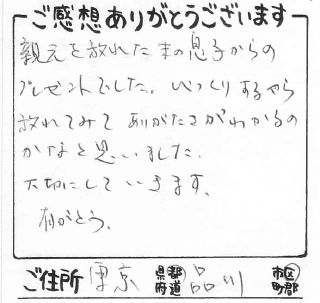 ご感想ありがとうございます
親元を放れた末の息子からの
プレゼントでした。びっくりするやら
放れてみてありがたさがわかるの
かなと思いました。
大切にしていきます。
有がとう。
ご住所 東京 都道府県 品川 市区町郡